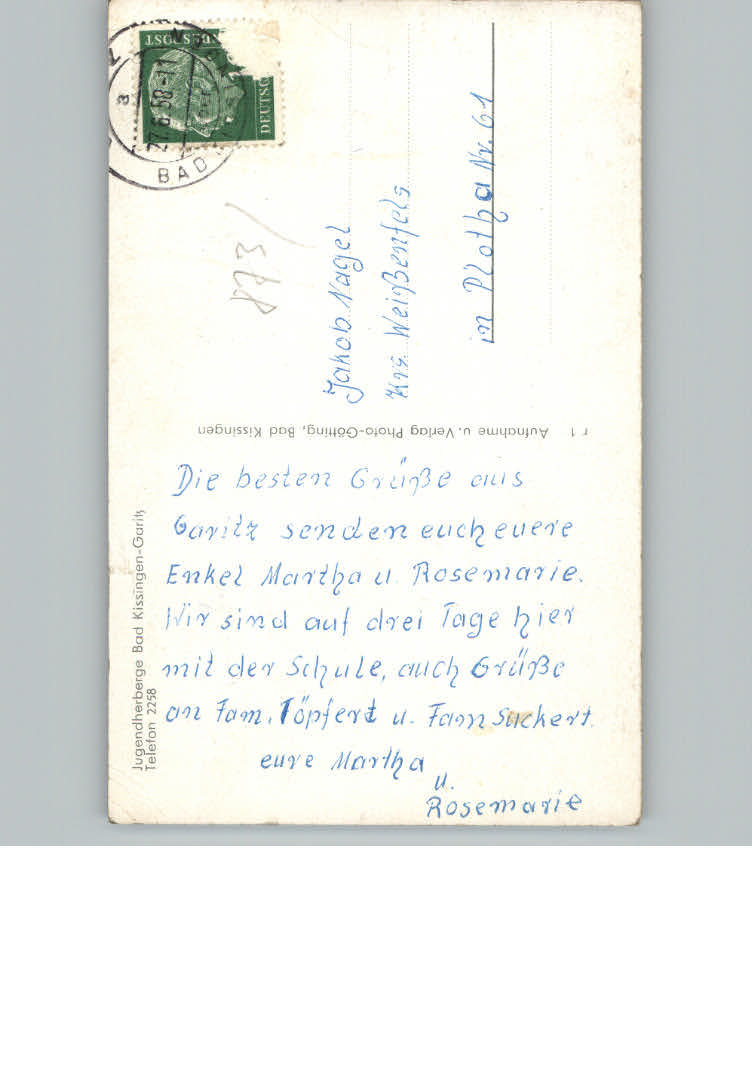 Jugendherberge Bad Kissingen-Garitz
Telefon 2258
Die besten Grüße aus
Garitz senden euch euere
Enkel Martha u. Rosemarie.
Wir sind auf drei Tage hier
mit der Schule, auch Grüße
an Fam. Töpfert u. Fam Suckert.
eure Martha
u.
Rosemarie
r 1 Aufnahme u. Verlag Photo-Götting, Bad Kissingen
Jakob Nagel
Krs. Weißenfels
in Plotha Nr. 61
873/
DEUTSC
POST
27.6.58-11
a
BAD